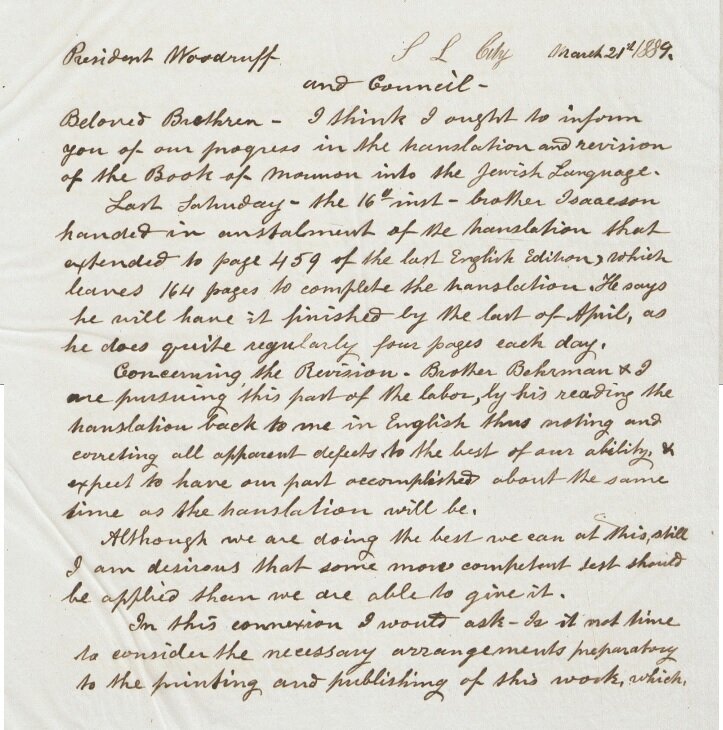 President Woodruff S L City March 21st 1889.
and Council -
Beloved Brethren - I think I ought to inform
you of our progress in the translation and revision
of the Book of Mormon into the Jewish Language.
Last Saturday - the 16th inst - brother Isaacson
handed in an stalment of the translation that
extended to page 459 of the last English Edition, which
leaves 164 pages to complete the translation. He says
he will have it finished by the last of April, as
he does quite regularly four pages each day.
Concerning the Revision - Brother Behrman & I
are pursuing this part of the labor, by his reading the
translation back to me in English thus noting and
correting all apparent defects to the best of our ability, &
expect to have our part accomplished about the same
time as the translation will be.
Although we are doing the best we can at this, still
I am desirous that some more competent test should
be applied than we are able to give it.
In this connexion I would ask - Is it not time
to consider the necessary arrangements preparatory
to the printing and publishing of this work, which,